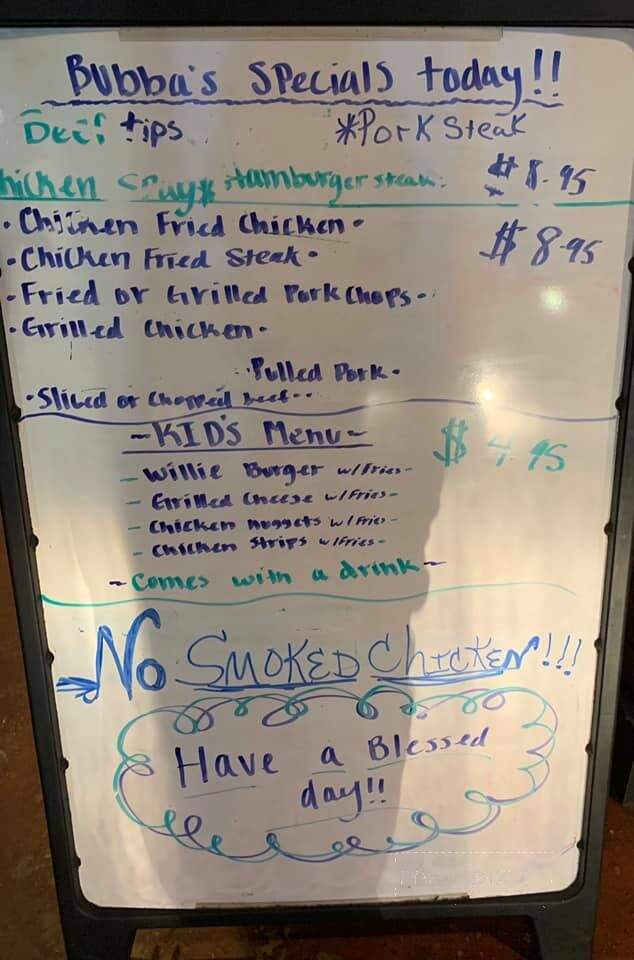 Bubba's Specials today!!
Beef tips *Pork Steak
Chicken Hamburger steak. $8.95
• Chicken Fried Chicken • $8.95
• Chicken Fried Steak •
• Fried or Grilled Pork Chops •
• Grilled Chicken •
• Pulled Pork •
• Sliced or Chopped beef ••
~KID'S Menu~ $4.95
- Willie Burger w/Fries -
- Grilled Cheese w/Fries -
- Chicken nuggets w/Fries -
- Chicken Strips w/Fries -
~ Comes with a drink ~
No Smoked Chicken!!!
Have a Blessed
day!!